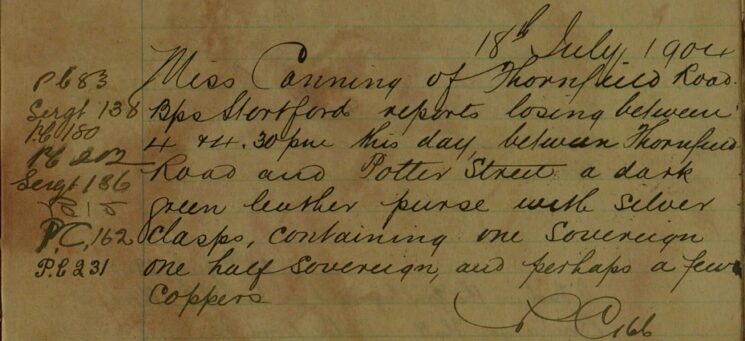 18th July, 1904
Miss Canning of Thornfield Road.
Bps Stortford reports losing between
4 & 4.30pm this day, between Thornfield
Road and Potter Street a dark
green leather purse with silver
clasps, containing one Sovereign
one half Sovereign, and perhaps a few
coppers
PC166
PC83
Sergt 138
PC 180
PC 202
Sergt 136
PC, 162
P.C 231